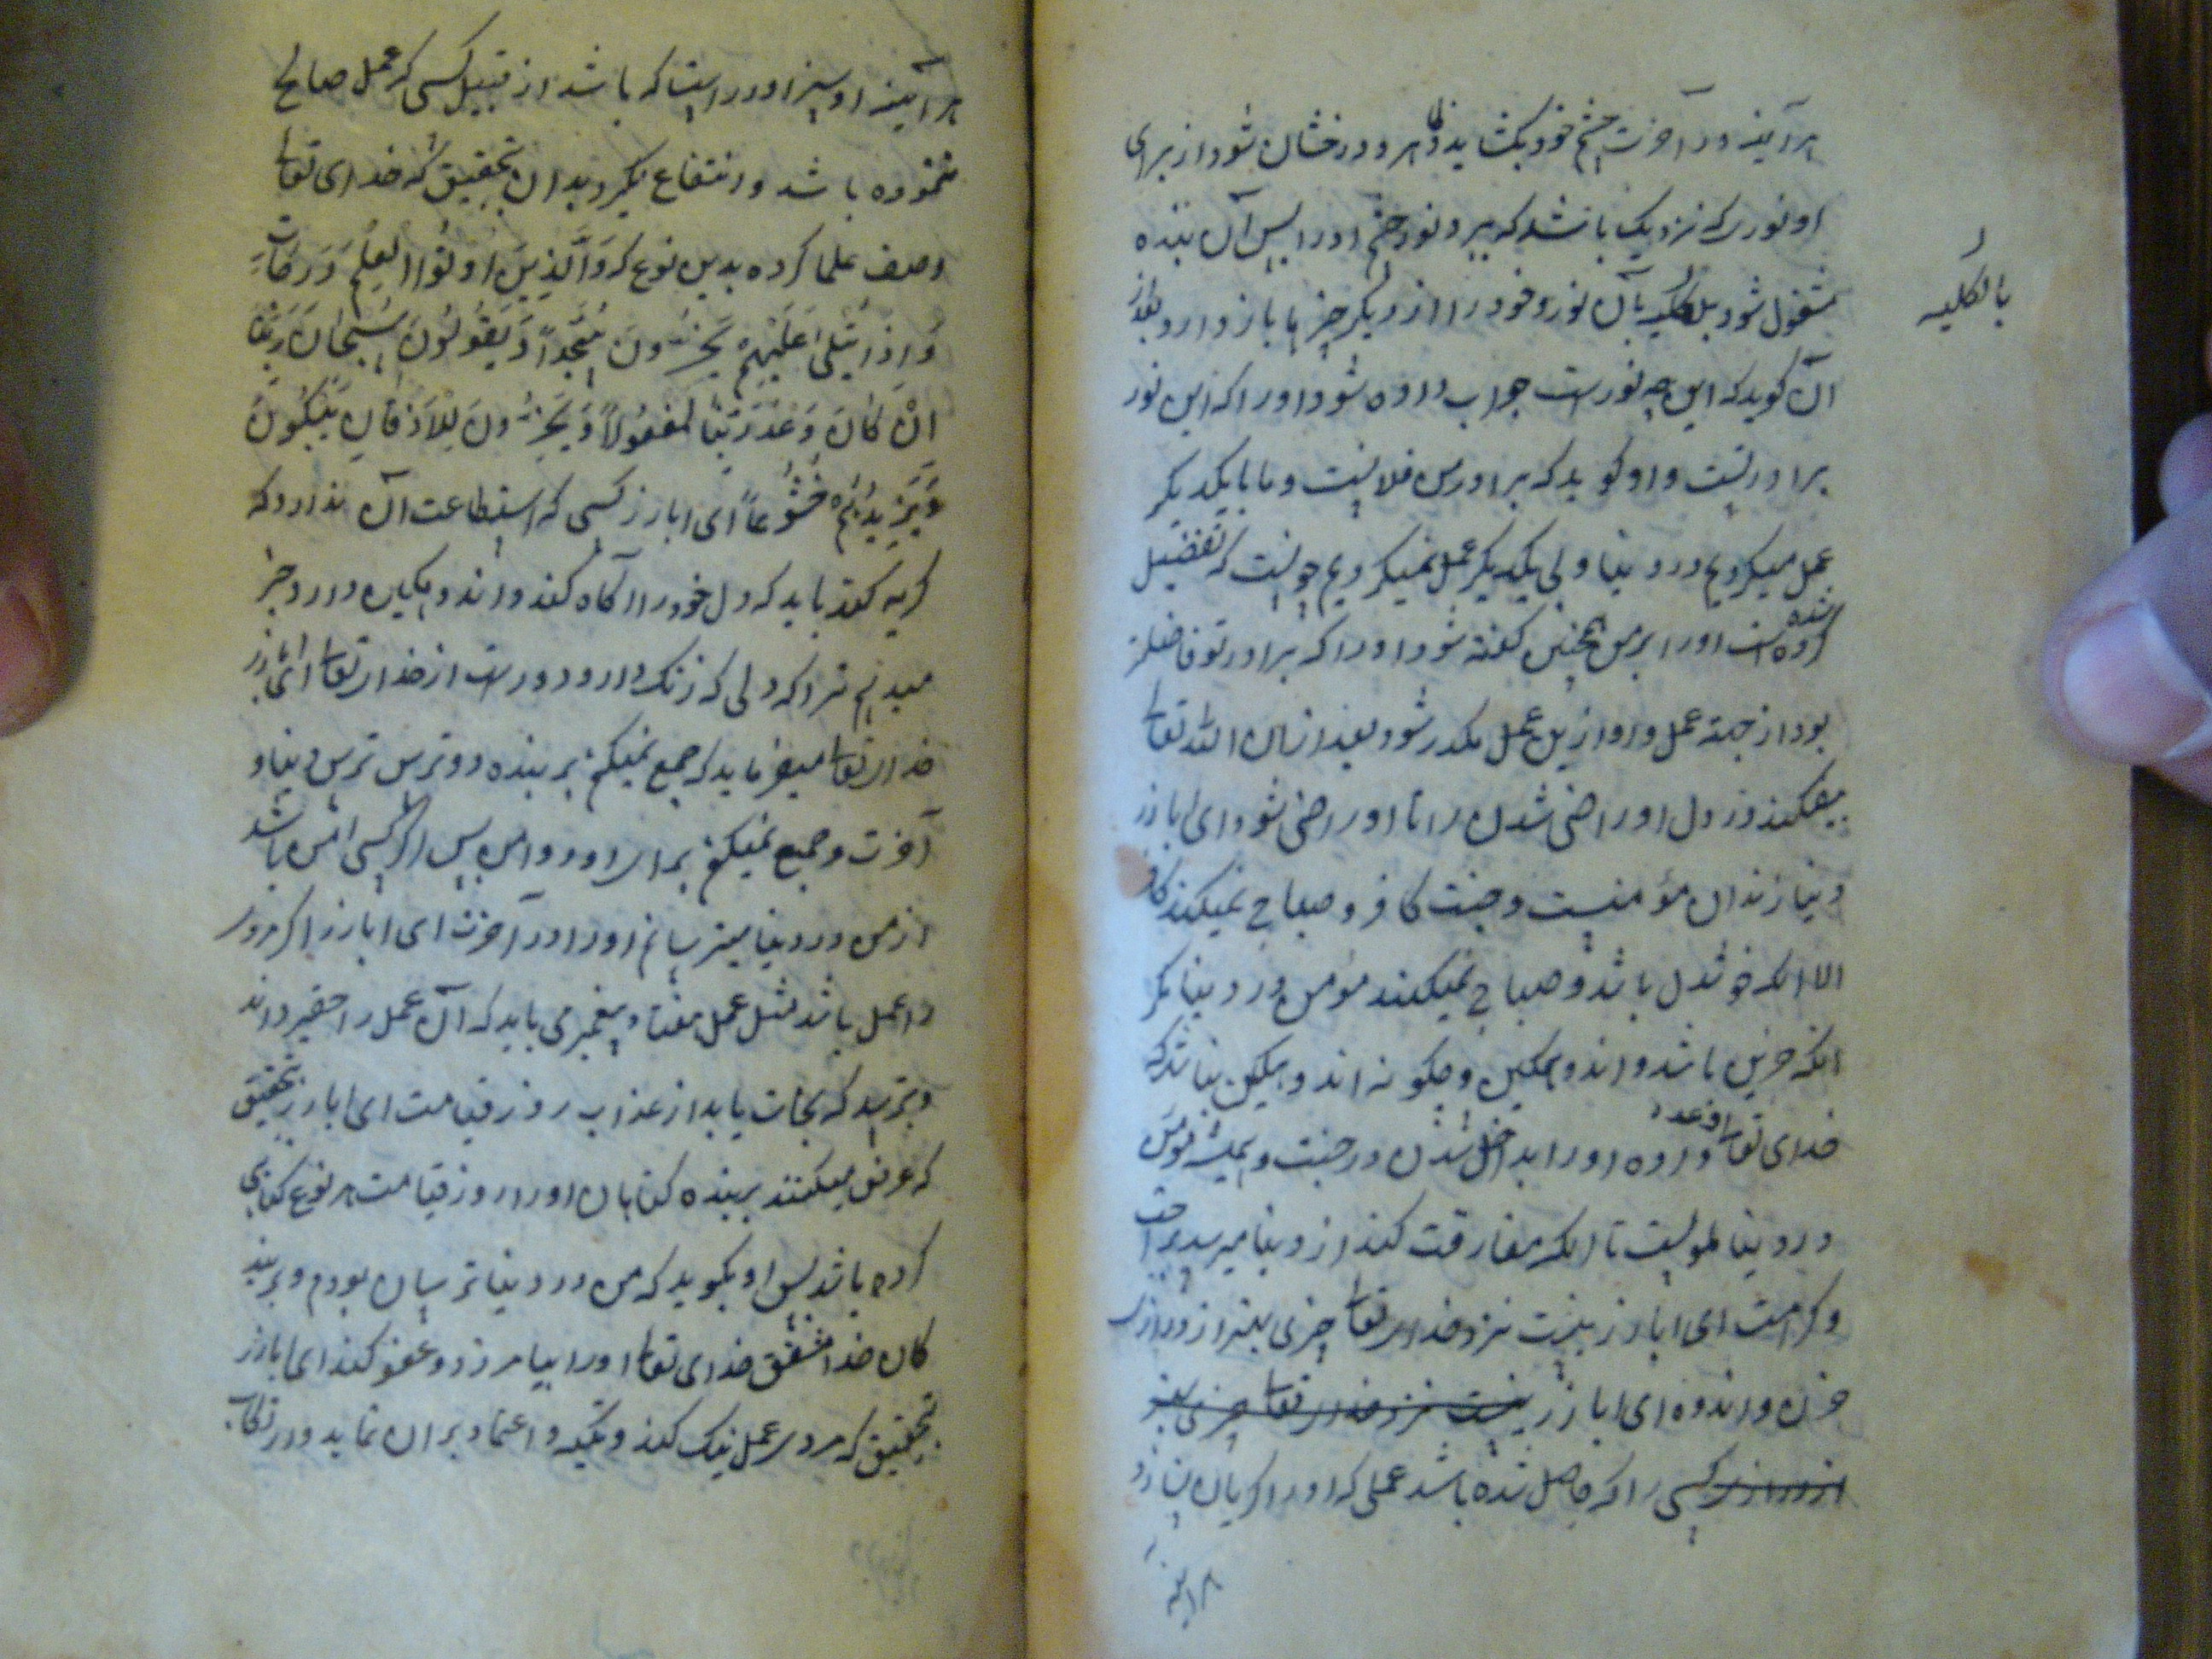 هر آینه در آخرت چشم خود بکشاید و هر دو درخشان شود از برای
او نوری که نزدیک باشد که ببرد نور چشم او را پس آن بنده
مشغول شود بلکلیه بآن نور و خود را از دیگر چیزها باز دارد بعد از
بالکلیه
آن کوید که این چه نورست جواب داده شود او را که این نور
برادر تست و او کوید که برادر من فلانیست و ما با یکدیگر
عمل میکردیم در دنیا ولی بیکدیگر عمل نمیکردیم چونست که تفضیل
کرده شده است او را بر من همچنین کفته شود او را که برادر تو فاضلتر
بود از جهة عمل و او ازین عمل مکدر شود بعد از ان الله تعالی
میفکند در دل او راضی شدن را تا او راضی شود ای اباذر
دنیا زندان مؤمنست و جنت کافر و صباح نمیکند کافر
الا انکه خوشدل باشد و صباح نمیکند مؤمن در دنیا مکر
انکه حزین باشد و اندوهکین و چکونه اندوهکین نباشد که
خدای تعالی وعده داده او را بداخل شدن در جنت و همیشه مؤمن
در دنیا ملولست تا انکه مفارقت کند از دنیا میرسد براحت
و کرامت ای اباذر نیست نزد خدای تعالی چیزی بهتر از درازی
حزن و اندوه ای اباذر نیست نزد خدای تعالی چیزی بهتر
از درازی کسی را که حاصل شده باشد عملی که او را کریان نسازد
هر اینه
هر آینه او سزاوارست که باشد از قبیل کسی که عمل صالح
ننموده باشد و انتفاع نکیرد بدان بتحقیق که خدای تعالی
وصف علما کرده بدین نوع که وَالَّذِینَ اُوتُوا العِلمَ دَرَجَاتٍ
وَ اِذَا یُتْلَی عَلَیْهِمْ یَخِرُّونَ سُجَّداً وَ یَقُولُونَ سُبحَانَ رَبِّنَا
اِنْ کَانَ وَعْدُ رَبِّنَا لَمَفْعُولاً وَ یَخِرُّونَ لِلْاَذقَانِ یَبْکُونَ
وَیَزِیدُهُم خُشُوعاً ای اباذر کسی که استطاعت آن ندارد که
کریه کند باید که دل خود را آکاه کند و اندوهکین دارد و خبر
میدهم ترا که دلی که زنک دارد دورست از خدای تعالی ای اباذر
خدای تعالی میفرماید که جمع نمیکنم بر بنده دو ترس ترس دنیا و
آخرت و جمع نمیکنم برای او دو امن پس اکر کسی امن باشد
از من در دنیا میترسانم او را در آخرت ای اباذر اکر مردی
را عمل باشد مثل عمل هفتاد پیغمبر می باید که آن عمل را حقیر داند
و بترسد که نجات یابد از عذاب روز قیامت ای اباذر بتحقیق
که عرض میکنند بر بنده کناهان او را روز قیامت هر نوع کناهی
کرده باشد پس او بکوید که من در دنیا ترسان بودم و بر بند
کان خدا مشفق خدای تعالی او را بیامرزد و عفو کند ای اباذر
بتحقیق که مردی عمل نیک کند و تکیه و اعتماد بران نماید و ارتکاب